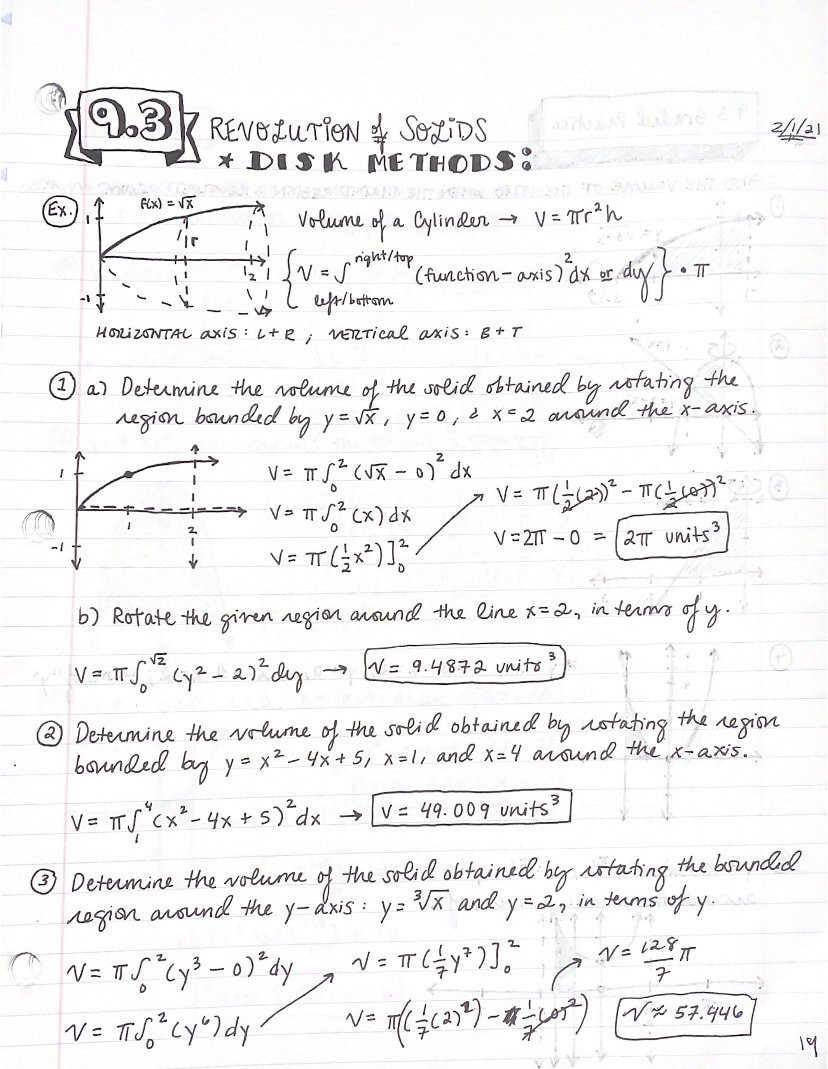 9.3 REVOLUTION of SOLIDS 2/1/21
* DISK METHODS:
Ex. f(x) = √x Volume of a Cylinder → V = πr²h
1 r 2 -1
{V = ∫ right/top left/bottom (function - axis)² dx or dy} • π
HORIZONTAL axis: L + R ; VERTICAL axis: B + T
① a) Determine the volume of the solid obtained by rotating the
region bounded by y = √x, y = 0, & x = 2 around the x-axis.
1 1 2 -1
V = π∫₀² (√x - 0)² dx
V = π∫₀² (x) dx
V = π(½x²)]₀²
V = π(½(2))² - π(½(0))²
V = 2π - 0 = 2π units³
b) Rotate the given region around the line x = 2, in terms of y.
V = π∫₀^√2 (y² - 2)² dy → V = 9.4872 units³
② Determine the volume of the solid obtained by rotating the region
bounded by y = x² - 4x + 5, x = 1, and x = 4 around the x-axis.
V = π∫₁⁴ (x² - 4x + 5)² dx → V = 49.009 units³
③ Determine the volume of the solid obtained by rotating the bounded
region around the y-axis: y = ³√x and y = 2, in terms of y.
V = π∫₀² (y³ - 0)² dy
V = π∫₀² (y⁶) dy
V = π(1/7 y⁷)]₀²
V = π((1/7(2)²) - 1/7(0)²)
V = 128/7 π
V ≈ 57.446
19